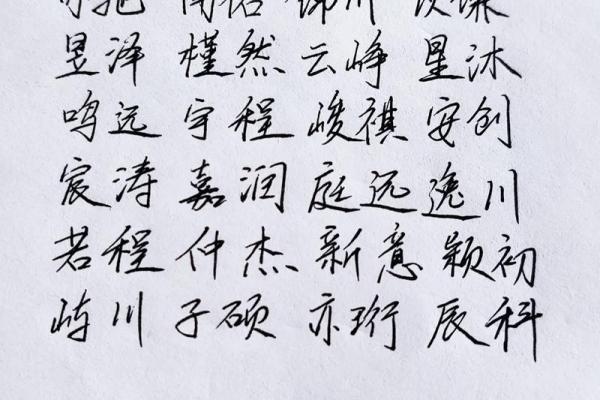 昱泽 槿然 云峥 星沐
鸣远 宇程 峻祺 安创
宸涛 嘉润 庭远 逸川
若程 仲杰 新意 颖初
峙川 子硕 亦珩 辰科